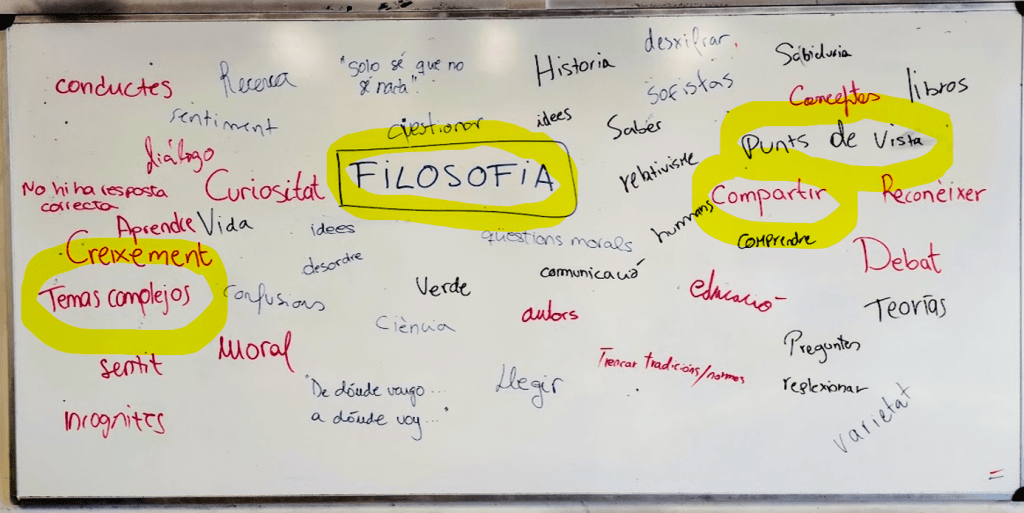 desxifrar.
Sabiduria
Historia
"Solo sé que no
sé nada".
Recerca
conductes
sofistas
Conceptes
libros
sentiment
qüestionar
idees
Saber
Punts de vista
diálogo
FiLOSOFiA
relativisme
No hi ha resposta
correcta
Curiositat
Compartir
Reconèixer
Aprendre
Vida
idees
qüestions morals
humans
comprendre
Creixement
desordre
comunicació
Debat
Temas complejos
confusions
Verde
educació
Teorías
Ciència
autors
sentit
Moral
Trencar tradicions/normes
Preguntes
reflexionar
"De dónde vengo...
a dónde voy..."
Llegir
incognites
varietat
=